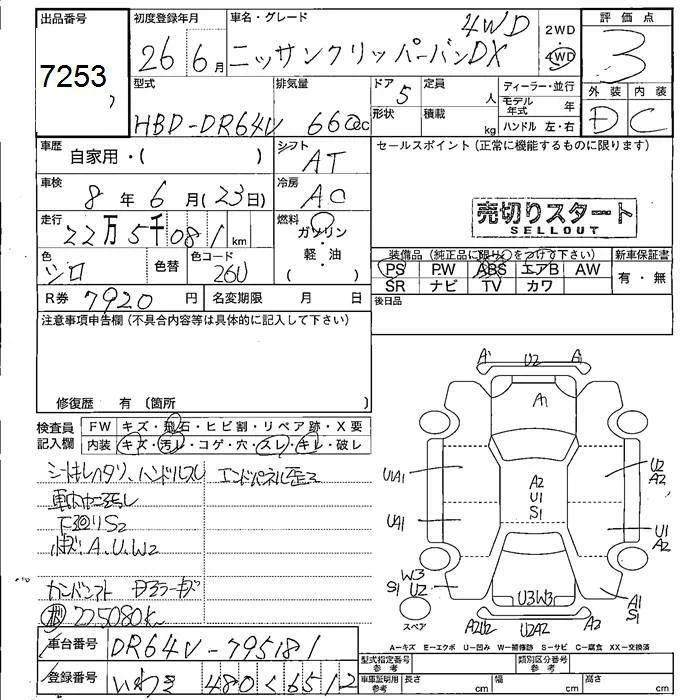 出品番号 初度登録年月 車名・グレード 評価点
7253 26年 6月 ニッサンクリッパーバンDX 4WD 2WD 4WD 3
型式 排気量 ドア 定員 ディーラー・並行 外装 内装
HBD-DR64V 660cc 5 人 モデル年式 年 D C
形状 積載 kg ハンドル 左・右
車歴 自家用・( ) シフト AT セールスポイント(正常に機能するものに限ります)
車検 8年 6月(23日) 冷房 AC
売切りスタート
SELLOUT
走行 22万5千081km 燃料 ガソリン
軽・油
( )
色 シロ 色替 色コード 26U
装備品(純正品に限り○をつけ下さい) 新車保証書
PS P.W ABS エアB AW 有・無
SR ナビ TV カワ
R券 7920円 名変期限 月 日 後日品
注意事項申告欄(不具合内容等は具体的に記入して下さい)
修復歴 有(箇所
検査員 FW キズ・飛石・ヒビ割・リペア跡・X要
記入欄 内装 キズ・汚レ・コゲ・穴・スレ・キレ・破レ
ハンドルスレ エンドパネル歪ミ
下廻りS2
小キズ A.U.W2
225080K
A1 U2 A1
A1
U1A1 U2
A2
A2
U1
S1
UA1 U1
A2
W3
S1 U2
U3W3 A1
S1
スペア A2U2 U2A2 A2
A-キズ E-エクボ U-凹み W-補修跡 S-サビ C-腐食 XX-交換済
車台番号 DR64V-795181
型式指定番号 参考 類別区分番号 参考
登録番号 いわき 480 く 6512
車庫証明用 参考 長さ cm 幅 cm 高さ cm